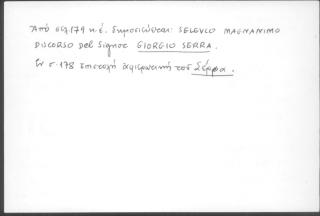 Από σελ. 179 κ.έ. δημοσιεύεται: SELEUCO MAGNANIMO
DISCORSO del Signor GIORGIO SERRA.
Εν σ. 178 επιστολή αφιερωτική του Σέρρα.